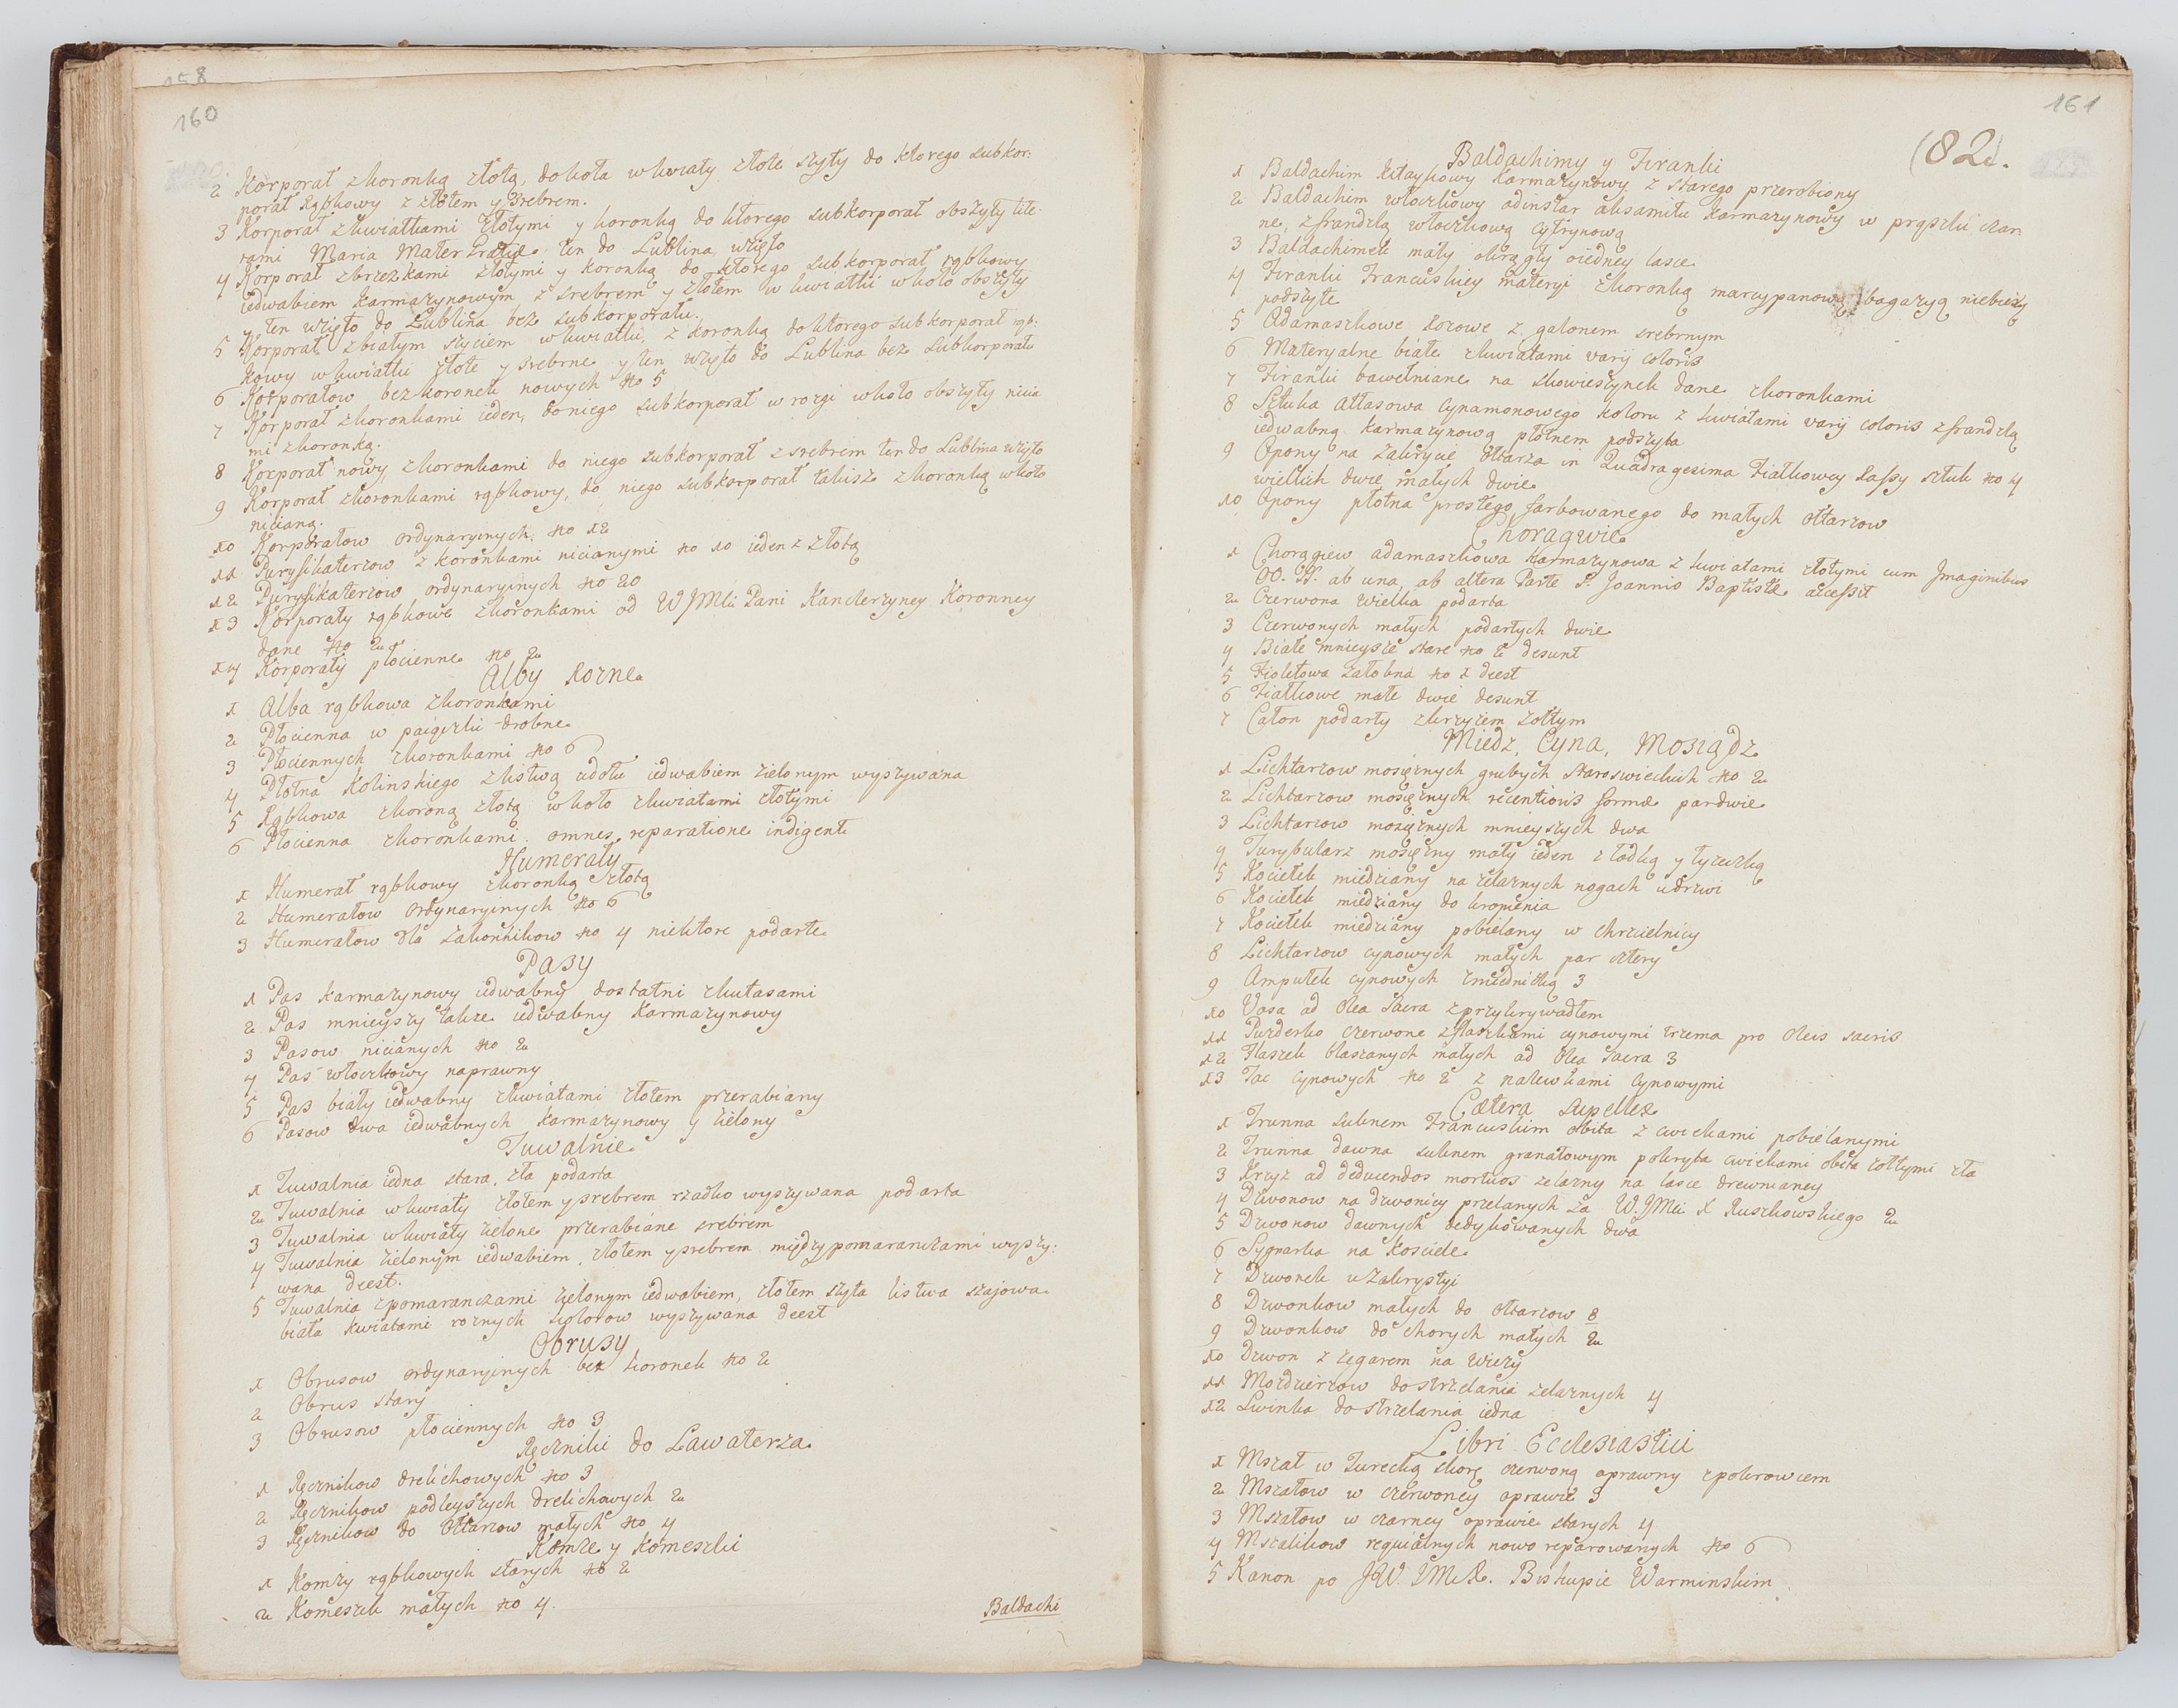 158
160
2 Korporał z koronką złotą, dokoła w kwiaty złote szyty do ktorego subkor:
porał rąbkowy z złotem y srebrem.
3 Korporał z kwiatkami złotymi y koronką do ktorego subkorporał obszyty lite-
rami Maria Mater Gratiæ, ten do Lublina, wzięto
4 Korporał z brzezkami złotymi y koronką do ktorego subkorporał rąbkowy
iedwabiem karmazynowym, z srebrem y złotem w kwiatki w koło obszyty
y ten wzięto do Lublina bez subkorporału.
5 Korporał z białym szyciem w kwiatki, z koronką do ktorego subkorporał rąb:
kowy w kwiatki złote y srebrne y ten wzięto do Lublina bez subkorporału
6 Korporałow bez koronek nowych no 5
7 Korporał z koronkami ieden, do niego subkorporał w rozgi w koło obszyty nicia
mi z koronką.
8 Korporał nowy, z koronkami do niego subkorporał z srebrem ten do Lublina wzięto
9 Korporał z koronkami rąbkowy, do niego subkorporał takisz z koronką w koło
nicianą.
10 Korporałow ordynaryinych no 12
11 Puryfikaterzow z koronkami nicianymi no 10 ieden z złotą
12 Puryfikaterzow ordynaryinych no 20
13 Korporały rąbkowe z koronkami od WJMci Pani Kanclerzyney Koronney
dane no 2
14 Korporały płocienne no 2
Alby Rozne
1 Alba rąbkowa z koronkami
2 Płocienna w paiączki drobne
3 Płociennych z koronkami no 6
4 Płotna Kolinskiego z listwą u dołu iedwabiem zielonym wyszywana
5 Rąbkowa z koroną złotą w koło z kwiatami złotymi
6 Płocienna z koronkami. omnes reparatione indigent
Humerały
1 Humerał rąbkowy z koronką złotą
2 Humerałow ordynaryinych no 6
3 Humerałow dla zakonnikow no 4 niektore podarte
Pasy
1 Pas karmazynowy iedwabny dostatni z kutasami
2 Pas mnieyszy takze iedwabny karmazynowy
3 Pasow nicianych no 2
4 Pas włoczkowy naprawny
5 Pas biały iedwabny z kwiatami złotem przerabiany
6 Pasow dwa iedwabnych karmazynowy y zielony
Tuwalnie
1 Tuwalnia iedna stara, zła podarta
2 Tuwalnia w kwiaty złotem y srebrem rzadko wyszywana podarta
3 Tuwalnia w kwiaty zielone przerabiane srebrem
4 Tuwalnia zielonym iedwabiem, złotem y srebrem między pomaranczami wyszy:
wana deest.
5 Tuwalnia z pomaranczami zielonym iedwabiem, złotem szyta listwa szajowa
biała kwiatami roznych kolorow wyszywana deest
Obrusy
1 Obrusow ordynaryinych bez koronek no 2
2 Obrus stary
3 Obrusow płociennych no 3
Ręczniki do Lawaterza
1 Ręcznikow drelichowych no 3
2 Ręcznikow podleyszych drelichowych 2
3 Ręcznikow do Ołtarzow małych no 4
Komze y Komeszki
1 Komzy rąbkowych starych no 2
2 Komeszek małych no 4.
Baldachi
161
(82).
Baldachimy y Firanki
1 Baldachim kitaykowy karmazynowy z starego przerobiony
2 Baldachim włoczkowy adinstar aksamitu karmazynowy w prąszki czar
ne, z frandzlą włoczkową cytrynową
3 Baldachimek mały okrągły o iedney lasce
4 Firanki Francuskiey materyi z koronką marcypanową bagazyą niebieską
podszyte
5 Adamaszkowe rozowe z galonem srebrnym
6 Materyalne białe z kwiatami varij coloris
7 Firanki bawełniane na skowieszynek dane z koronkami
8 Sztuka atłasowa cynamonowego koloru z kwiatami varij coloris z frandzlą
iedwabną karmazynową płotnem podszyta
9 Opony na zakrycie Ołtarza in Quadragesima Fiałkowey Rassy sztuk no 4
wielkich dwie małych dwie
10 Opony płotna prostego farbowanego do małych Ołtarzow
Chorągwie
1 Chorągiew adamaszkowa karmazynowa z kwiatami złotymi cum Imaginibus
OO. SS. ab una, ab altera Parte S. Joannis Baptistæ accessit
2 Czerwona wielka podarta
3 Czerwonych małych podartych dwie
4 Białe mnieysze stare no 2 desunt
5 Fioletowa załobna no 1 deest
6 Fiałkowe małe dwie desunt
7 Całon podarty z krzyżem żołtym
Miedz, Cyna, Mosiądz
1 Lichtarzow mosięznych grubych staroswieckich no 2
2 Lichtarzow mosięznych recentioris formæ par dwie
3 Lichtarzow mosięznych mnieyszych dwa
4 Turybularz mosięzny mały ieden z łodką y łyszczką
5 Kociełek miedziany na zelaznych nogach u drzwi
6 Kociełek miedziany do kropienia
7 Kociełek miedziany pobielany w chrzcielnicy
8 Lichtarzow cynowych małych par cztery
9 Ampułek cynowych z miednicką 3
10 Vasa ad Olea Sacra z przykrywadłem
11 Puzderko czerwone z flaszkami cynowymi trzema pro Oleis sacris
12 Flaszek blaszanych małych ad Olea Sacra 3
13 Tac cynowych no 2 z nalewkami cynowymi
Cætera Supellex
1 Trunna suknem Francuskim obita z cwiekami pobielanymi
2 Trunna dawna suknem granatowym pokryta cwiekami obita żołtymi zła
3 Krzyz ad deducendos mortuos zelazny na lasce drewnianey
4 Dzwonow na dzwonicy przelanych za W.JMci X Ruszkowskiego 2
5 Dzwonow dawnych dedykowanych dwa
6 Sygnarka na Kosciele
7 Dzwonek u Zakrystyi
8 Dzwonkow małych do Ołtarzow 8
9 Dzwonkow do chorych małych 2
10 Dzwon z zegarem na Wiezy
11 Mozdzierzow do strzelania zelaznych 4
12 Swinka do strzelania iedna
Libri Ecclesiastici
1 Mszał w Turecką skorę czerwoną oprawny z pokrowcem
2 Mszałow w czerwoney oprawie 3
3 Mszałow w czarney oprawie starych 4
4 Mszalikow requialnych nowo reparowanych no 6
5 Kanon po JW. JMX. Biskupie Warminskim